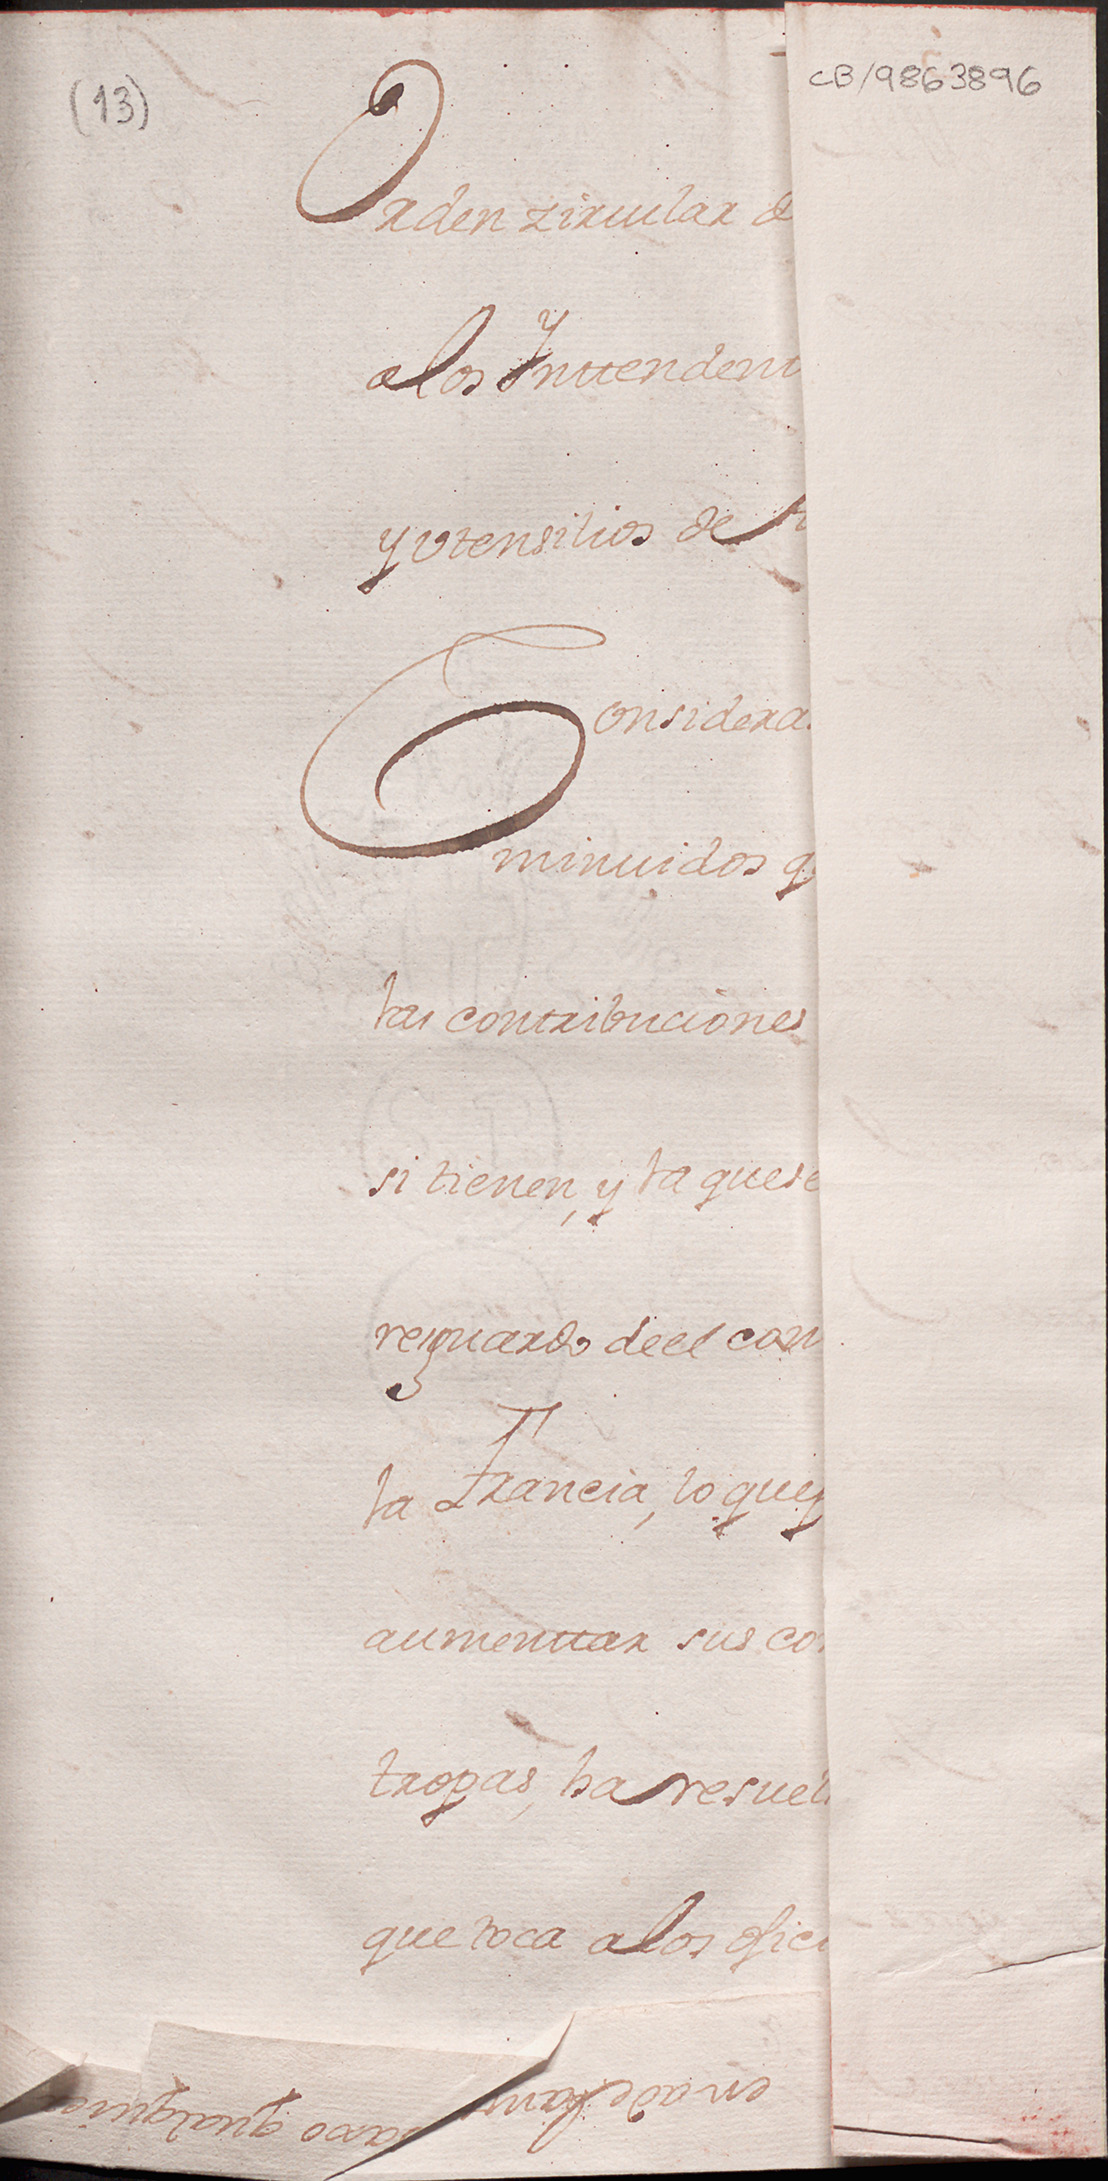 (13)
CB/9863896
Orden zircular de
a los Yntendent
y vtensilios de tr
Considera
minuidos q
las contribuciones
si tienen, y la que se
resguardo de el con
la Francia, lo que p
aumentar sus co
tropas, ha resuel
que toca a los ofici
en adelant
caso qualquie